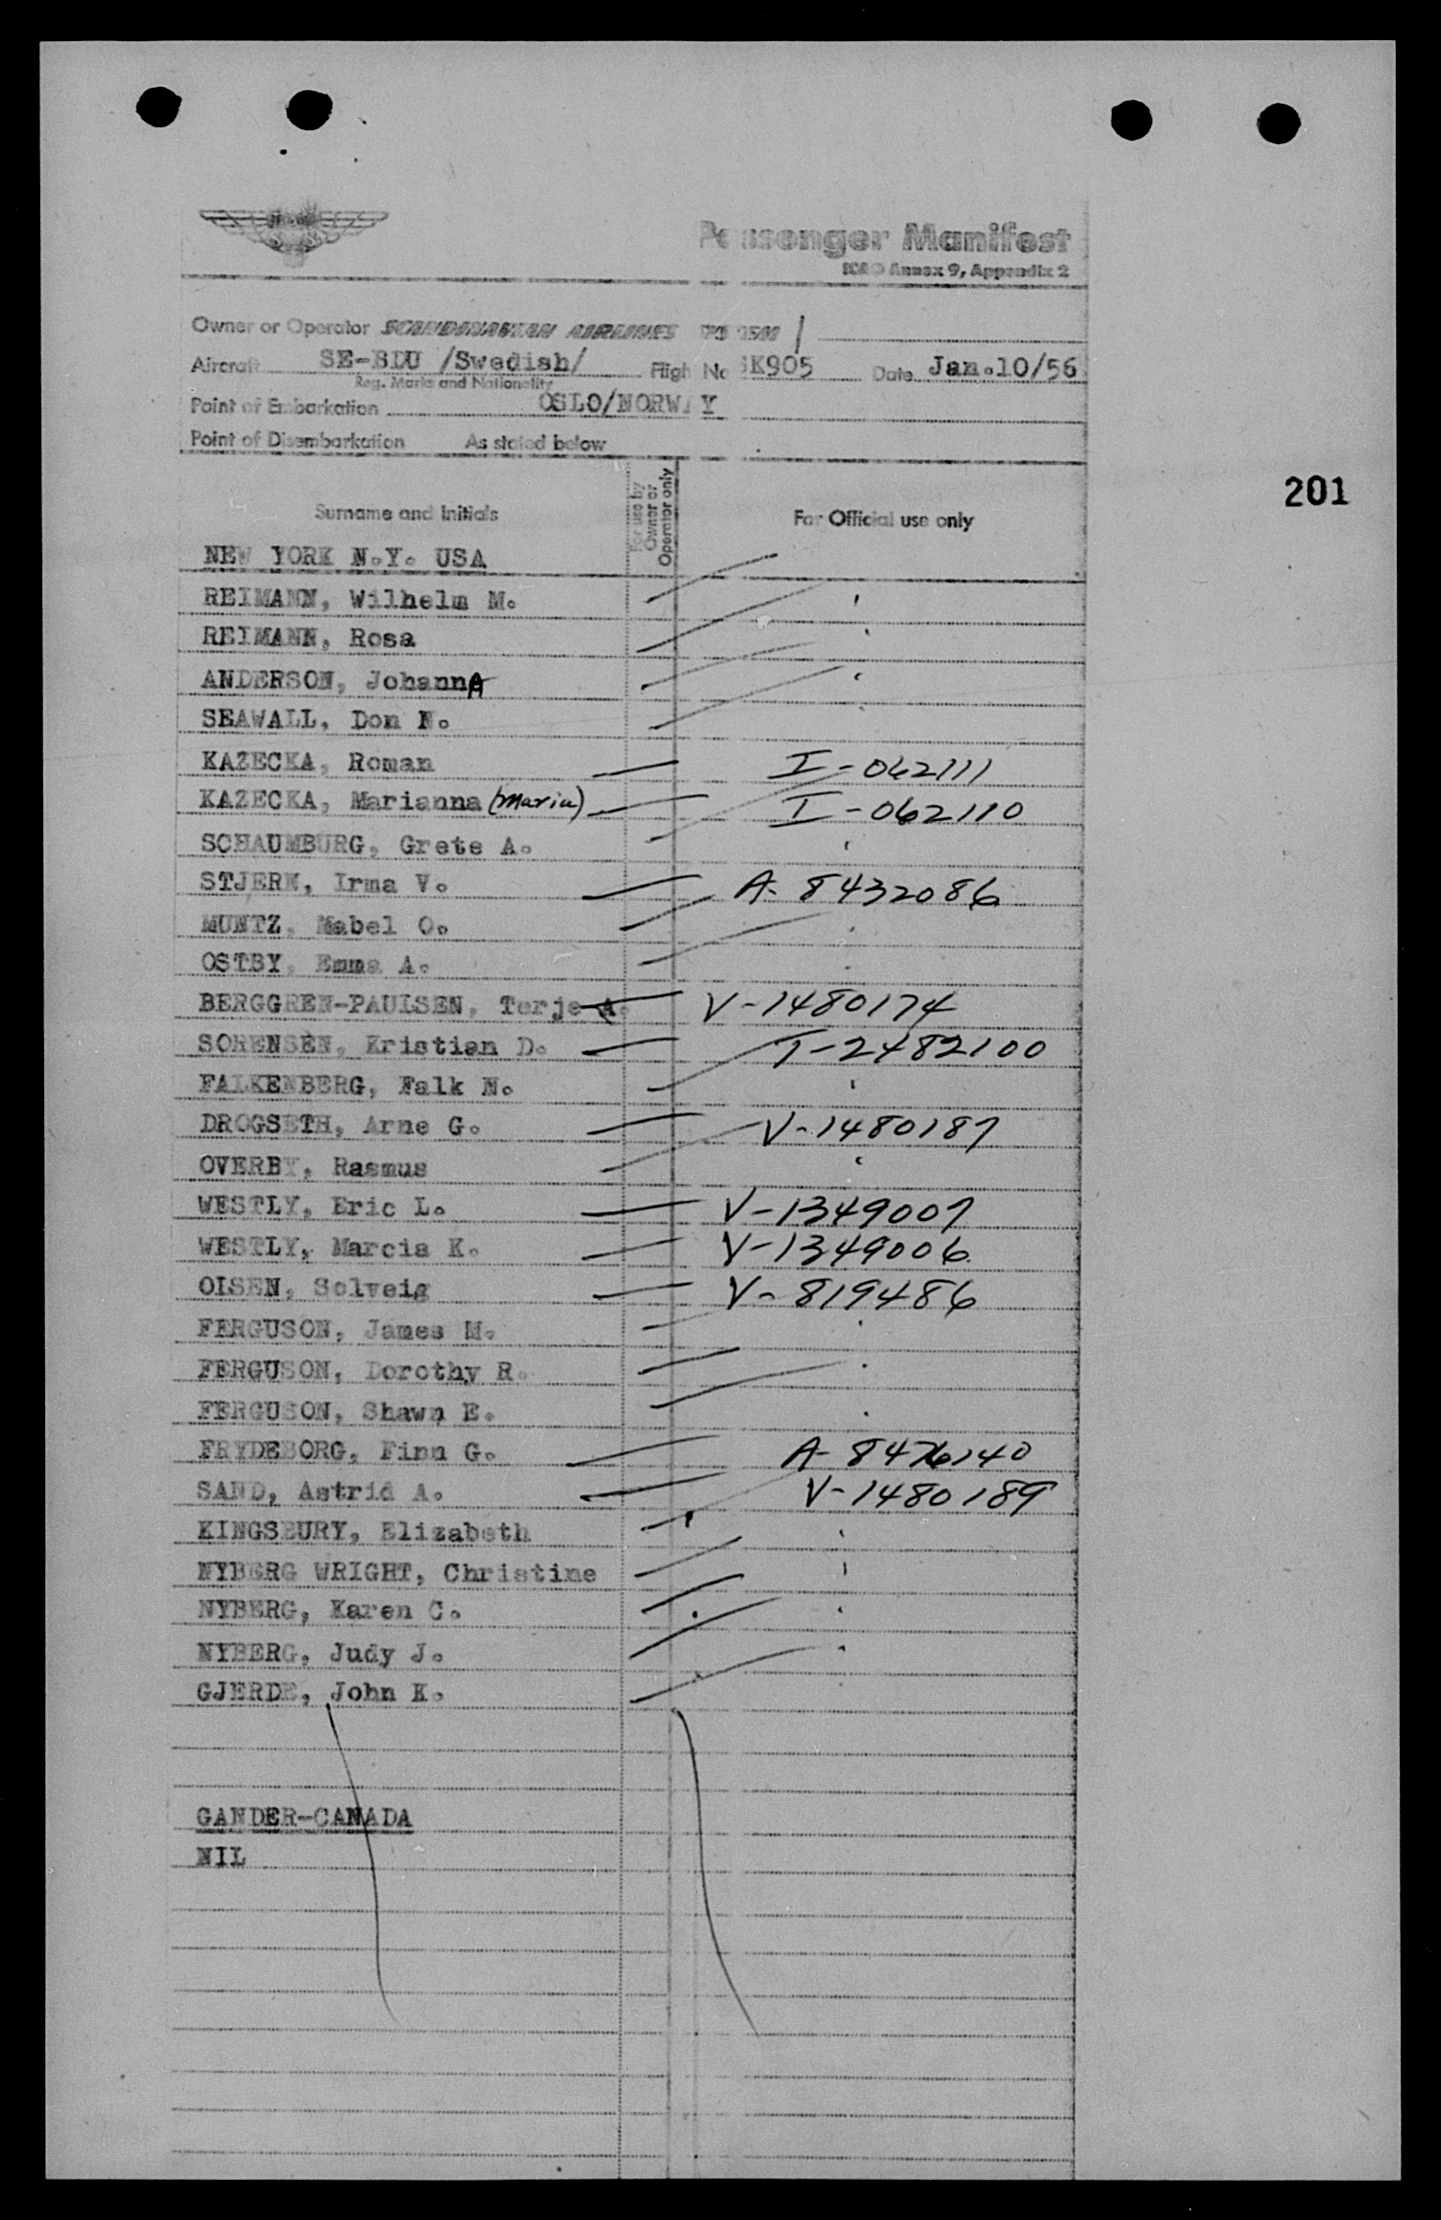 Passenger Manifest
ICAO Annex 9, Appendix 2
Owner or Operator SCANDINAVIAN AIRLINES SYSTEM
Aircraft SE-BDU /Swedish/ Flight No SK905 Date Jan.10/56
Reg. Marks and Nationality
Point of Embarkation OSLO/NORWAY
Point of Disembarkation As stated below
201
Surname and Initials For use by Owner or Operator only For Official use only
NEW YORK N.Y. USA
REIMANN, Wilhelm M.
REIMANN, Rosa
ANDERSON, JohannA
SEAWALL, Don N.
KAZECKA, Roman I-062111
KAZECKA, Marianna (Maria) I-062110
SCHAUMBURG, Grete A.
STJERN, Irma V. A-8432086
MUNTZ, Mabel O.
OSTBY, Emma A.
BERGGREN-PAULSEN, Terje A. V-1480174
SORENSEN, Kristian D. T-2482100
FALKENBERG, Falk N.
DROGSETH, Arne G. V-1480187
OVERBY, Rasmus
WESTLY, Eric L. V-1349007
WESTLY, Marcia K. V-1349006
OLSEN, Solveig V-819486
FERGUSON, James M.
FERGUSON, Dorothy R.
FERGUSON, Shawn E.
FRYDEBORG, Finn G. A-8476140
SAND, Astrid A. V-1480189
KINGSBURY, Elizabeth
NYBERG WRIGHT, Christine
NYBERG, Karen C.
NYBERG, Judy J.
GJERDE, John K.
GANDER-CANADA
NIL